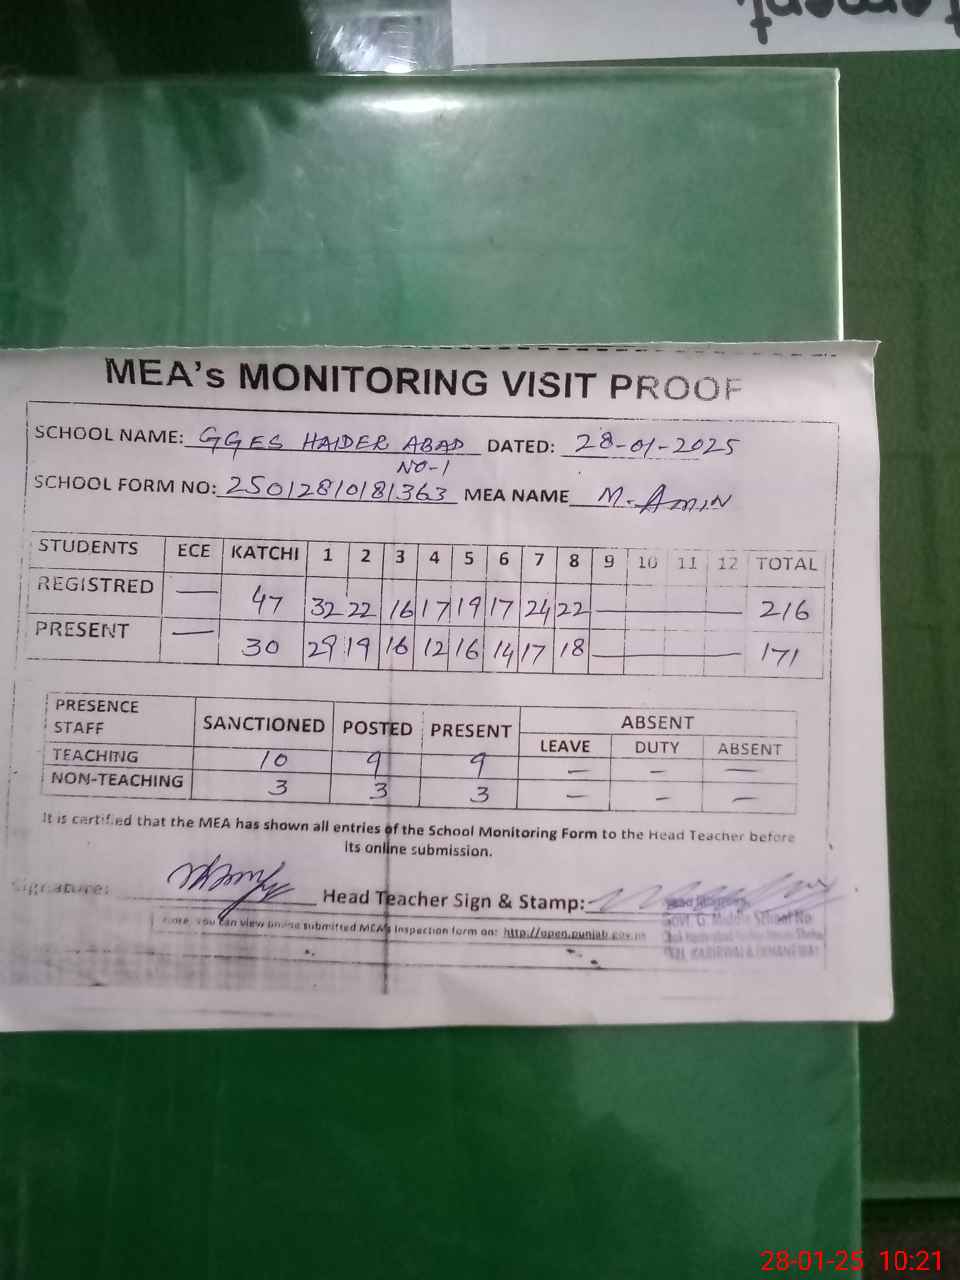 tement.
MEA's MONITORING VISIT PROOF
SCHOOL NAME: GGES HAIDER ABAD DATED: 28-01-2025
NO-1
SCHOOL FORM NO: 25012810181363 MEA NAME M. Amin
STUDENTS ECE KATCHI 1 2 3 4 5 6 7 8 9 10 11 12 TOTAL
REGISTRED — 47 32 22 16 17 19 17 24 22 — 216
PRESENT — 30 29 19 16 12 16 14 17 18 — 171
PRESENCE
STAFF SANCTIONED POSTED PRESENT ABSENT
LEAVE DUTY ABSENT
TEACHING 10 9 9 — — —
NON-TEACHING 3 3 3 — — —
It is certified that the MEA has shown all entries of the School Monitoring Form to the Head Teacher before
its online submission.
Signature: Head Teacher Sign & Stamp:
Govt. G. Middle School No
Note: you can view online submitted MEA's Inspection form on: http://open.punjab.gov.pk
KABIRWALA (KHANEWAL)
28-01-25 10:21